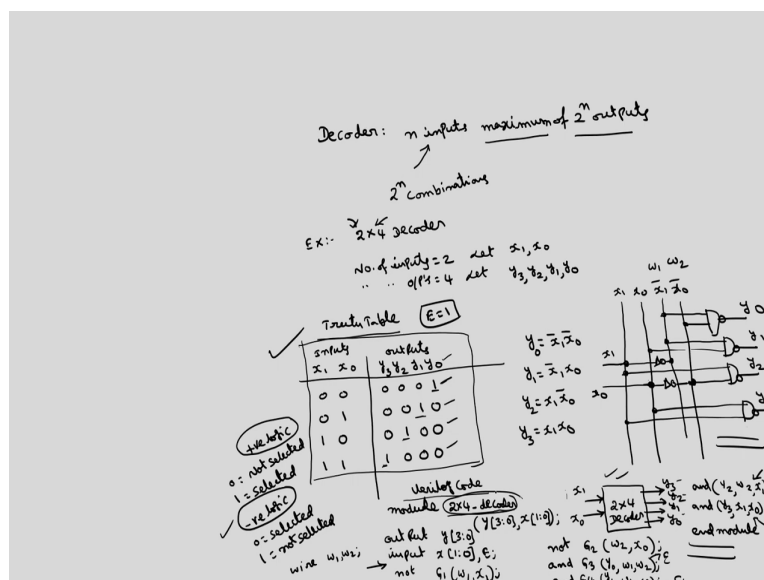 Decoder: n inputs maximum of 2ⁿ outputs
2ⁿ combinations
Ex:- 2x4 Decoder
No. of inputs = 2 Let x₁, x₀
" " o/p's = 4 Let y₃, y₂, y₁, y₀
Truth Table E=1
inputs outputs
x₁ x₀ y₃ y₂ y₁ y₀
0 0 0 0 0 1
0 1 0 0 1 0
1 0 0 1 0 0
1 1 1 0 0 0
y₀ = x̄₁ x̄₀
y₁ = x̄₁ x₀
y₂ = x₁ x̄₀
y₃ = x₁ x₀
w₁ w₂
x₁ x₀ x̄₁ x̄₀
x₁
x₀
y0
y₁
y₂
y
+ve logic
0 = not selected
1 = selected
-ve logic
0 = selected
1 = not selected
Verilog Code
module 2x4-decoder (y[3:0], x[1:0]);
output y[3:0]
input x[1:0], E;
wire w₁, w₂;
not G₁(w₁, x₁);
x₁
x₀
2x4
Decoder
y₃
y₂
y₁
y₀
not G₂ (w₂, x₀);
and G₃ (y₀, w₁, w₂); E
and (y₂, w₂, x
and (y₃, x₁, x₀)
endmodule